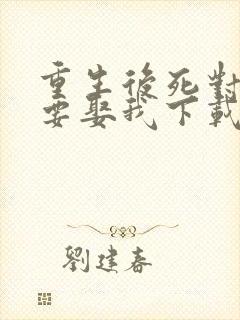 重生後死對
要娶我下載
劉建春